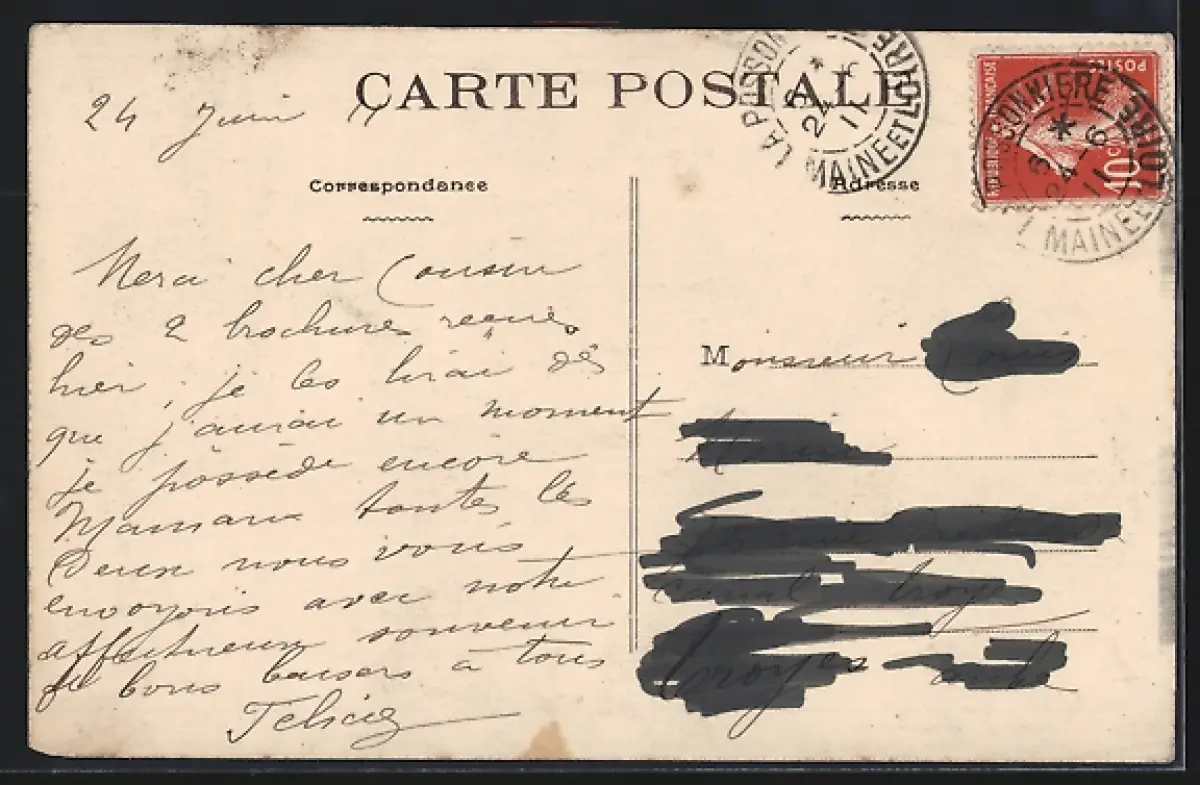 CARTE POSTALE
24 Juin 11
Correspondance
Merci cher Cousin
des 2 brochures reçues
hier, je les lirai dès
que j'aurai un moment
je possède encore
Maman toutes les
Deux nous vous
envoyons avec notre
affectueux souvenir
de bons baisers à tous
Félicie
Adresse
Monsieur
Troyes
LA POSSONNIERE
24 - 6
11
MAINE ET LOIRE
REPUBLIQUE FRANÇAISE
POSTES
10 c
POSSONNIERE
3
24 - 6
11
MAINE ET LOIRE